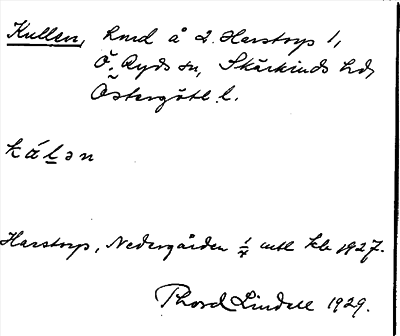 Kullen, lmd å L. Harstorp 1,
Ö. Ryds sn, Skärkinds hd,
Östergötl. l.
kálən
Harstorp, Nedergården ¼ mtl kb 1927.
Thord Lindell 1929.